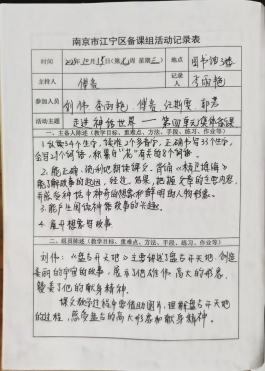 南京市江宁区备课组活动记录表
时间 地点 图书馆3楼
主持人 傅 记录人 李雨艳
参加人员 刘伟 李雨艳 傅 任斯雯 郭君
活动主题 走进神话世界——第四单元集体备课
一.主备人陈述(教学目标、重难点、方法、手段、练习、作业等)
1.认识34个生字,读准2个多音字,正确书写33个生字,
会写29个词语,积累由“老”有关的8个词语。
2.能正确、流利地朗读课文,背诵《精卫填海》
能了解故事的起因、经过、结果,把握文章的主要内容,
并感受神话中神奇的想象和鲜明的人物形象。
3.能产生阅读神话故事的兴趣。
4.展开想象写故事
二.组员陈述(教学目标、重难点、方法、手段、练习、作业等)
刘伟:《盘古开天地》主要讲述了盘古开天地,创造
美丽的宇宙的故事,展示了他雄伟、高大的形象,
赞美了他的献身精神。
课文教学过程中要借助图片,理解盘古开天地
的过程,感受盘古的高大形象和献身精神。